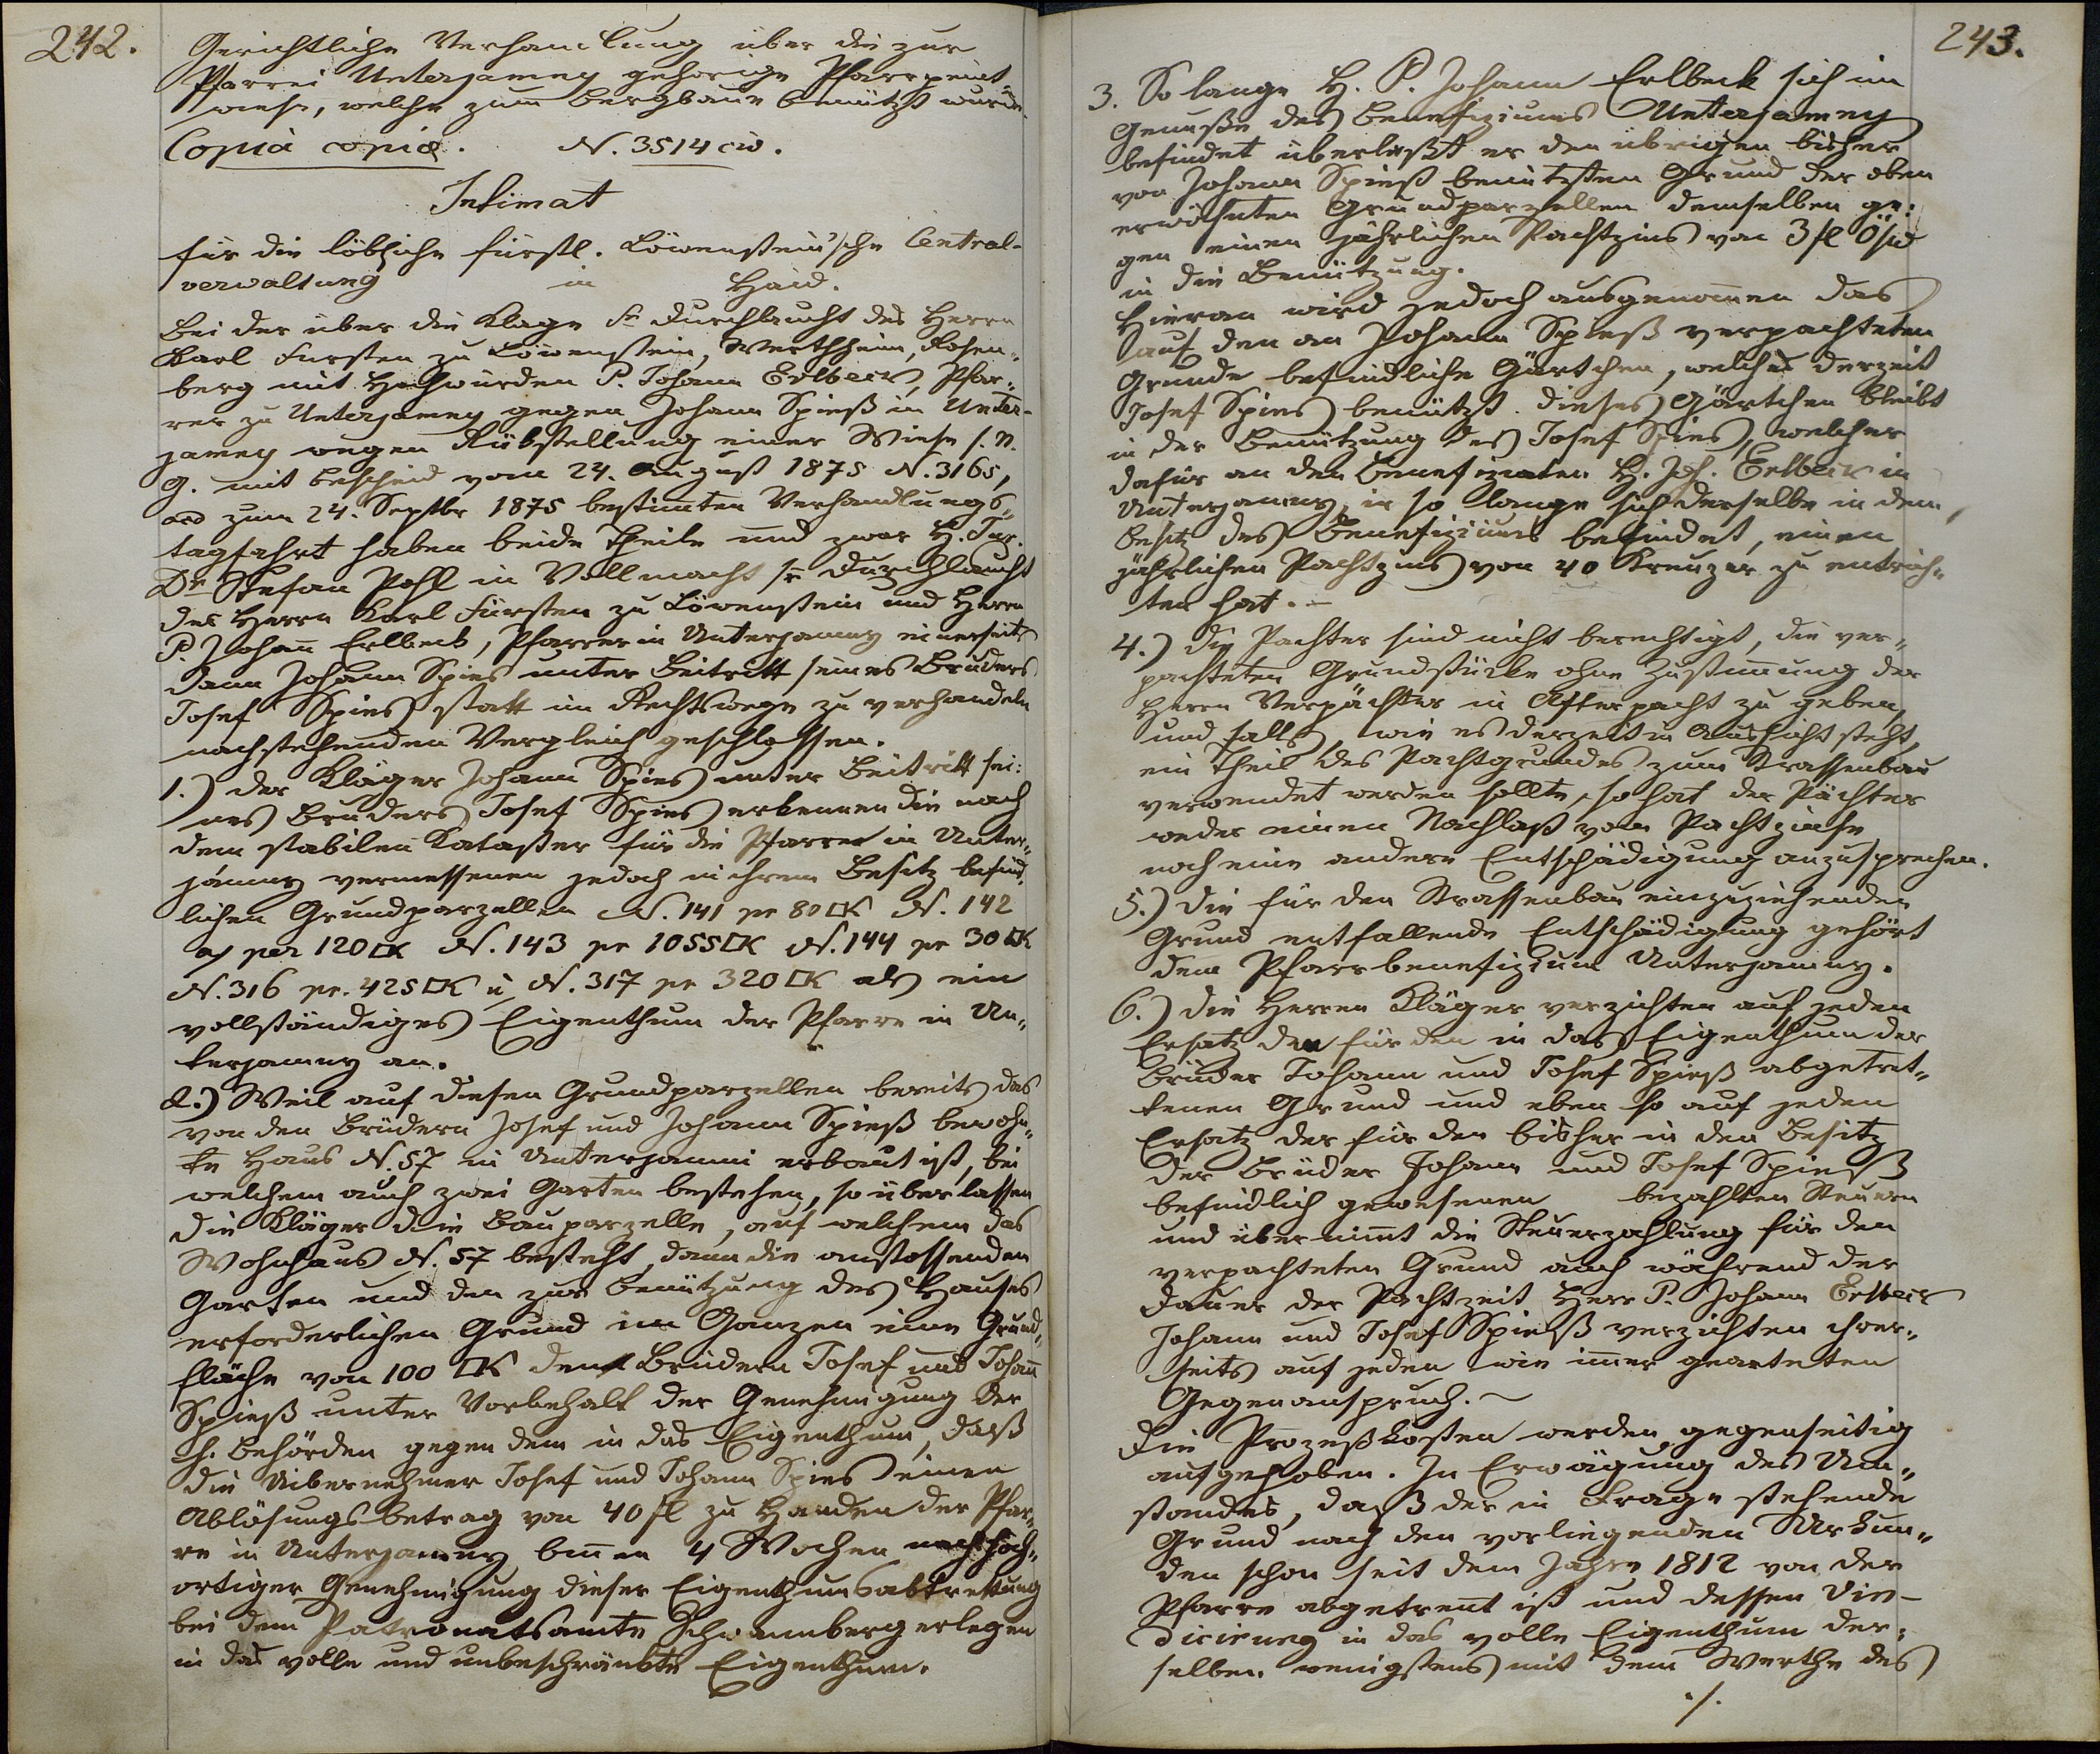 242.
Gerichtliche Verhandlung über die zur
Pfarrei Unterjamney gehörige Pfarrpeint
wiese, welche zum Bergbaue benützt wurde.
Copia copiæ. N. 3514 civ.
Intimat
für die löbliche fürstl. Löwenstein'sche Central-
verwaltung in Haid.
Bei der über die Klage Sr Durchlaucht des Herrn
Karl Fürsten zu Löwenstein, Werthheim, Rosen-
berg mit Hochwürden P. Johann Erlbeck, Pfar-
rer zu Unterjamney gegen Johann Spieß in Unter-
jamney wegen Rückstellung einer Wiese s. N.
G. mit Bescheid vom 24. August 1875 N. 3165,
ord zum 24. Septbr 1875 bestimten Verhandlungs-
tagfahrt haben beide Theile und zwar H. Jur.
Dr Stefan Pohl in Vollmacht Sr Durchlaucht
des Herrn Karl Fürsten zu Löwenstein und Herrn
P. Johann Erlbeck, Pfarrer in Unterjamny einerseits
dann Johann Spies unter Beitritt seines Bruders
Josef Spies statt im Rechtswege zu verhandeln
nachstehenden Vergleich geschlossen.
1.) der Kläger Johann Spies unter Beitritt sei:
nes Bruders Josef Spies erkennen die nach
dem stabilen Kataster für die Pfarrei in Unter-
jamny vermessenen jedoch in ihrem Besitz befind-
lichen Grundparzellen N. 141 pr 80□K N. 142
a/ per 120□K N. 143 pr 1055□K N. 144 pr 30□K
N. 316 pr. 425□K u N. 317 pr 320□K als ein
vollständiges Eigenthum der Pfarre in Un-
terjamny an.
2.) Weil auf diesen Grundparzellen bereits das
von den Brüdern Josef und Johann Spieß bewohn-
te Haus N. 57 in Unterjamni erbaut ist, bei
welchem auch zwei Garten bestehen, so überlassen
die Kläger die Bauparzelle, auf welchem das
Wohnhaus N. 57 besteht, dann die anstossenden
Garten und den zur Benützung des Hauses
erforderlichen Grund im Ganzen eine Grund-
fläche von 100 □K den Brüdern Josef und Johann
Spieß unter Vorbehalt der Genehmigung der
h. Behörden gegen dem in das Eigenthum, daß
die Uibernehmer Josef und Johann Spies einen
Ablösungsbetrag von 40 fl zu Handen der Pfar-
re in Unterjamny binnen 4 Wochen nach hoch-
ortiger Genehmigung dieser Eigenthumsabtrettung
bei dem Patronatsamte Schwannberg erlegen
in das volle und unbeschränkte Eigenthum.
243.
3. So lange H. P. Johann Erlbeck sich im
Genuße des Benefiziums Unterjamney
befindet überlaßt er den übrigen bisher
von Johann Spieß benützten Grund der oben
erwähnten Grundparzellen demselben ge:
gen einen jährlichen Pachtzins von 3 fl ÖW
in die Benützung.
Hievon wird jedoch ausgenommen das
auf den an Johann Spieß verpachteten
Grunde befindliche Gärtchen, welches derzeit
Josef Spies benützt. dieses Gärtchen bleibt
in der Benützung des Josef Spies, welcher
dafür an den Benefiziaten H. Joh. Erlbeck in
Unterjamny, in so lange sich derselbe in dem
Besitz des Benefiziums befindet, einen
jährlichen Pachtzins von 40 Kreuzer zu entrich-
ten hat. –
4.) die Pachter sind nicht berechtigt, die ver-
pachteten Grundstücke ohne Zustimmung der
Herrn Verpächter in Afterpacht zu geben,
und falls, wie es derzeit in Aussicht steht,
ein Theil des Pachtgrundes zum Strassenbau
verwendet werden sollte, so hat der Pächter
weder einen Nachlaß vom Pachtzinse
noch eine andere Entschädigung anzusprechen.
5.) die für den Strassenbau einzuziehenden
Grund entfallende Entschädigung gehört
dem Pfarrbenefizium Unterjamny.
6.) die Herren Kläger verzichten auf jeden
Ersatz den für den in das Eigenthum der
Brüder Johann und Josef Spieß abgetret-
tenen Grund und eben so auf jeden
Ersatz der für den bisher in den Besitz
der Brüder Johann und Josef Spieß
befindlich gewesenen bezahlten Steuern
und übernimt die Steuerzahlung für den
verpachteten Grund auch während der
Dauer der Pachtzeit Herr P. Johann Erlbeck
Johann und Josef Spieß verzichten ihrer-
seits auf jeden wie immer gearteten
Gegenanspruch. ~
Die Prozeßkosten werden gegenseitig
aufgehoben. In Erwägung des Um-
standes, daß der in Frage stehende
Grund nach den vorliegenden Urkun-
den schon seit dem Jahre 1812 von der
Pfarre abgetrent ist und dessen Vin-
dicirung in das volle Eigenthum der-
selben wenigstens mit dem Werthe des
./.